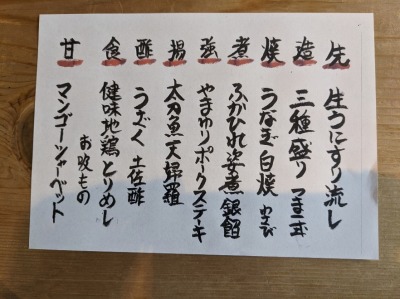 先 生うにすり流し
造 三種盛り つま一式
焼 うなぎ白焼 わさび
煮 ふかひれ姿煮 銀餡
強 やまゆりポークステーキ
揚 太刀魚天婦羅
酢 うざく 土佐酢
食 健味地鶏とりめし
お吸もの
甘 マンゴーシャーベット